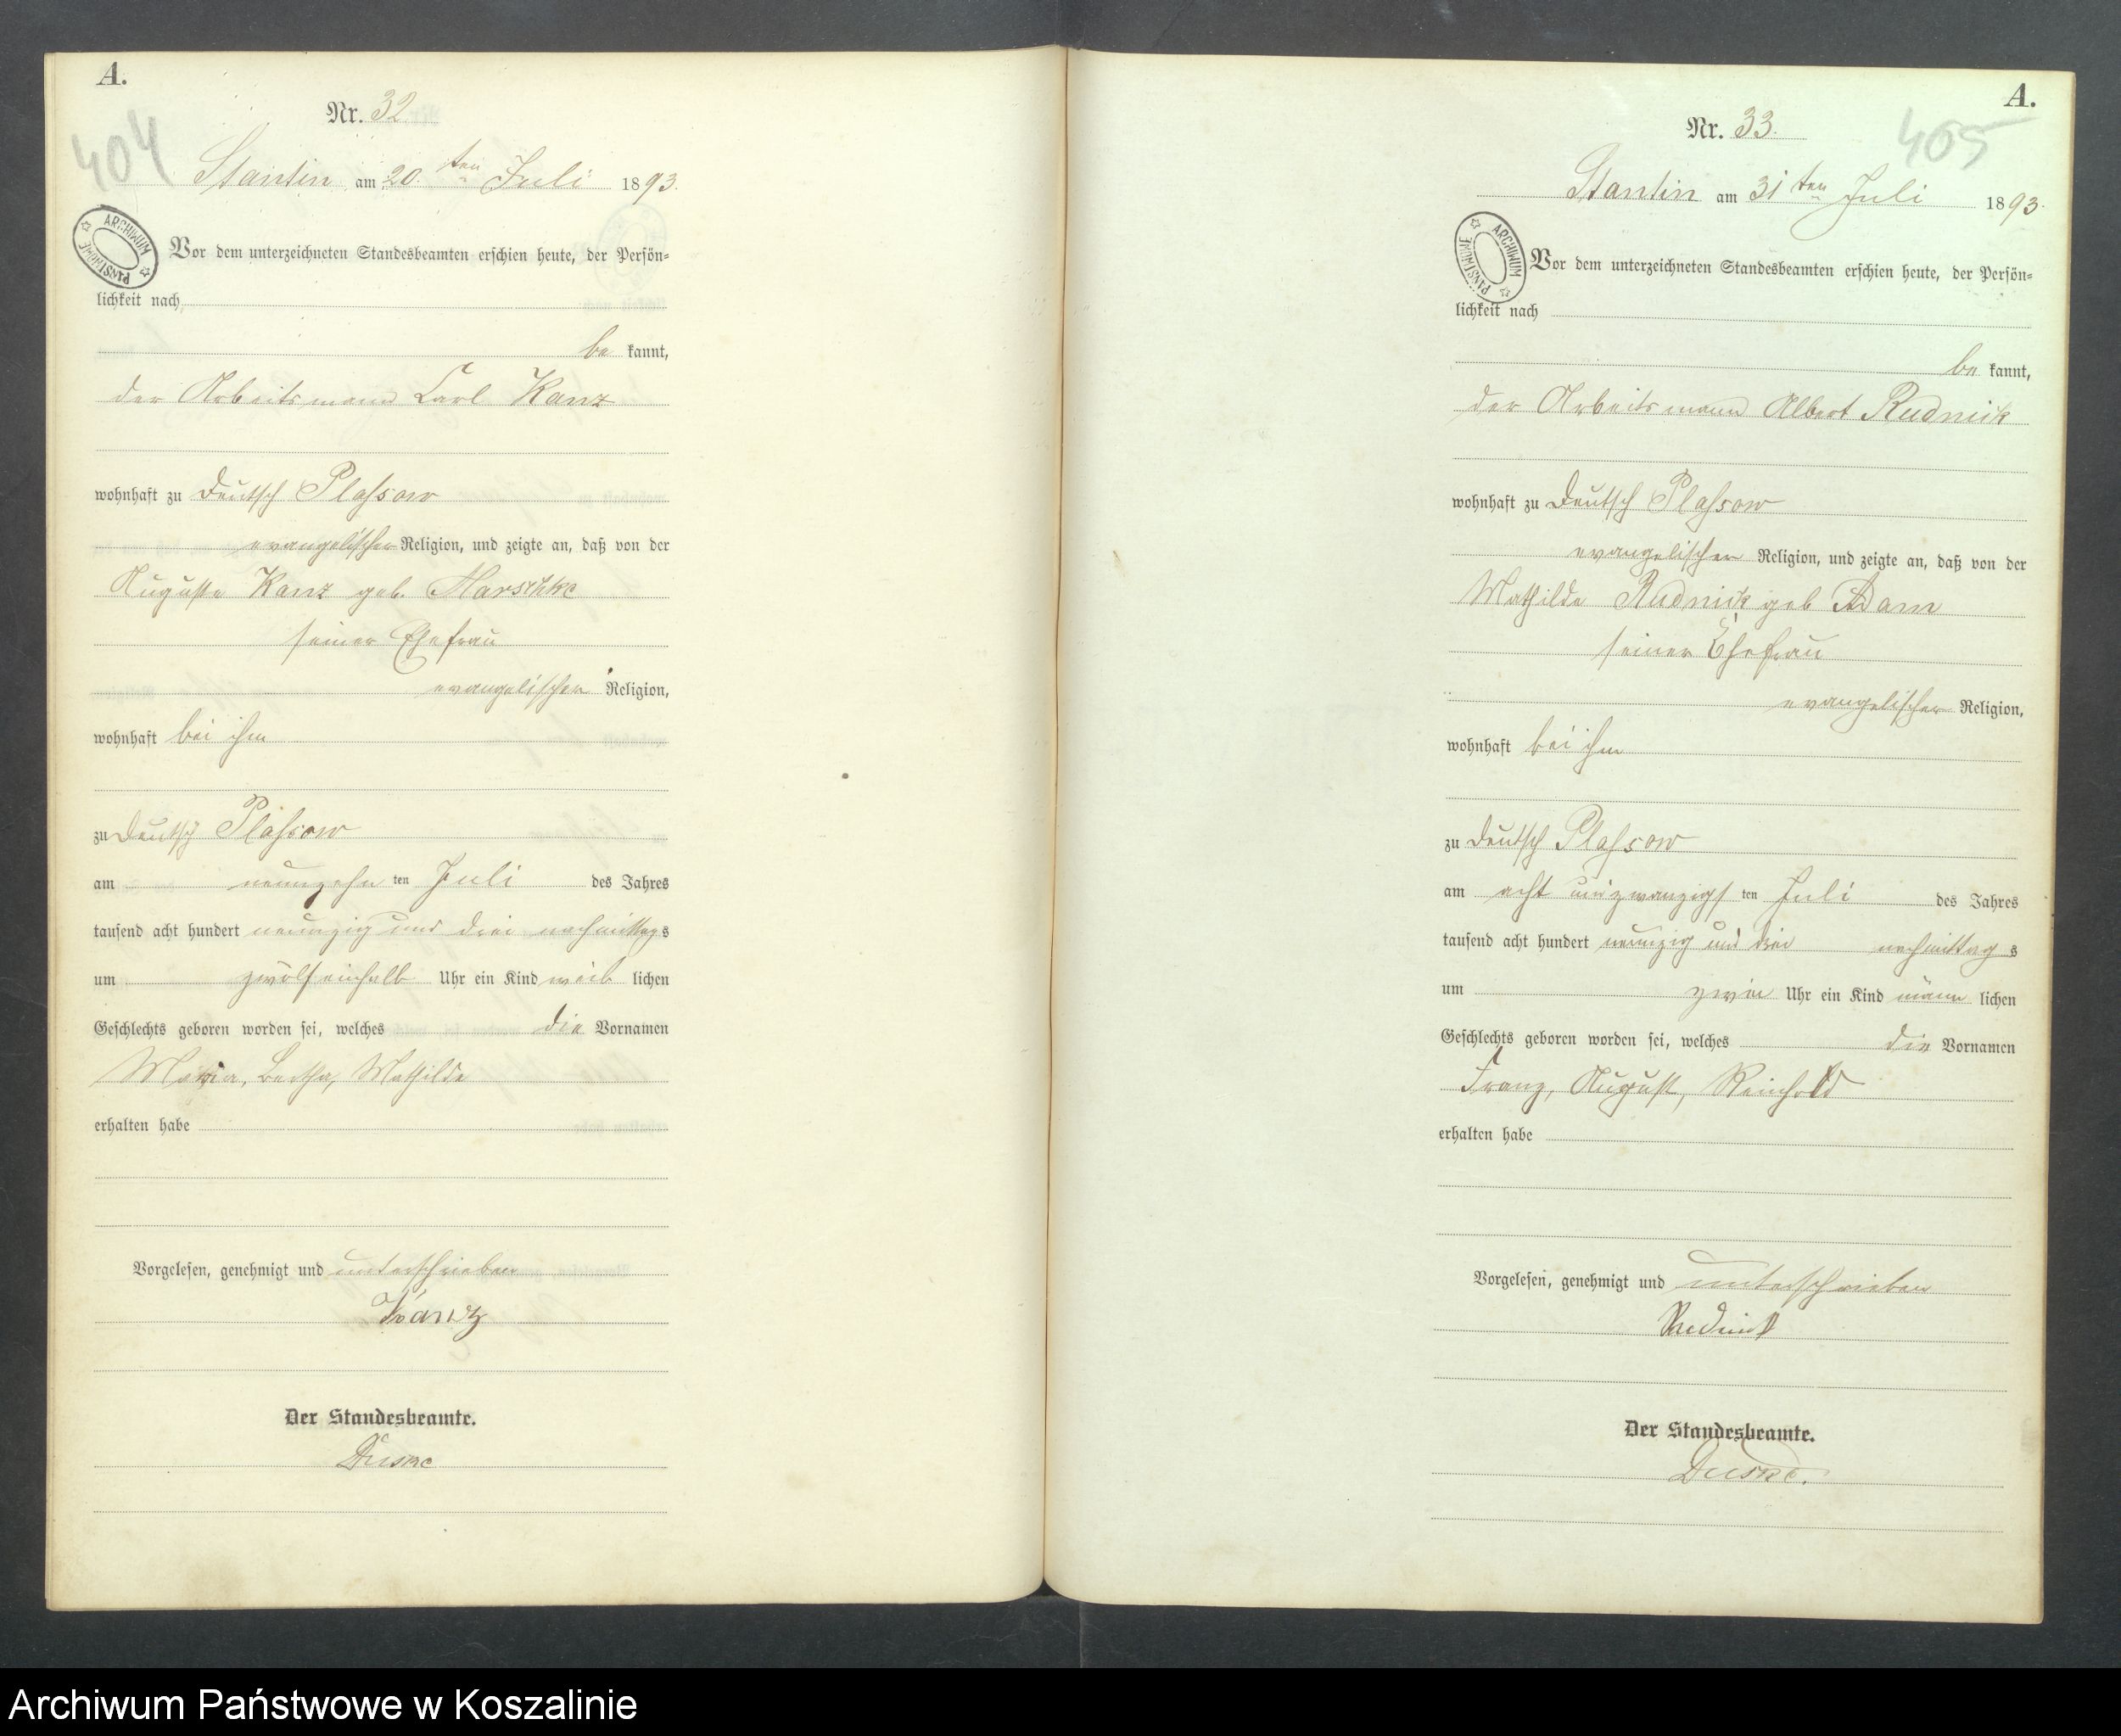 A.
Nr. 32.
404
Stantin am 20ten Juli 1893.
ARCHIWUM PAŃSTWOWE
Vor dem unterzeichneten Standesbeamten erschien heute, der Persön-
lichkeit nach
be kannt,
der Arbeitsmann Carl Kanz
wohnhaft zu Deutsch Plassow
evangelischer Religion, und zeigte an, daß von der
Auguste Kanz geb. Harschke
seiner Ehefrau
evangelischen Religion,
wohnhaft bei ihm
zu Deutsch Plassow
am neunzehn ten Juli des Jahres
tausend acht hundert neunzig und drei nachmittags
um zwölfeinhalb Uhr ein Kind weib lichen
Geschlechts geboren worden sei, welches die Vornamen
Maria, Bertha, Mathilde
erhalten habe
Vorgelesen, genehmigt und unterschrieben
Kanz
Der Standesbeamte.
Duske
A.
Nr. 33.
405
Stantin am 31ten Juli 1893.
ARCHIWUM PAŃSTWOWE
Vor dem unterzeichneten Standesbeamten erschien heute, der Persön-
lichkeit nach
be kannt,
der Arbeitsmann Albert Rudnick
wohnhaft zu Deutsch Plassow
evangelischer Religion, und zeigte an, daß von der
Mathilde Rudnick geb Adam
seiner Ehefrau
evangelischer Religion,
wohnhaft bei ihm
zu Deutsch Plassow
am acht und zwanzigs ten Juli des Jahres
tausend acht hundert neunzig und drei nachmittag s
um zwei Uhr ein Kind männ lichen
Geschlechts geboren worden sei, welches die Vornamen
Franz, August, Reinhold
erhalten habe
Vorgelesen, genehmigt und unterschrieben
Rudnick
Der Standesbeamte.
Duske.
Archiwum Państwowe w Koszalinie